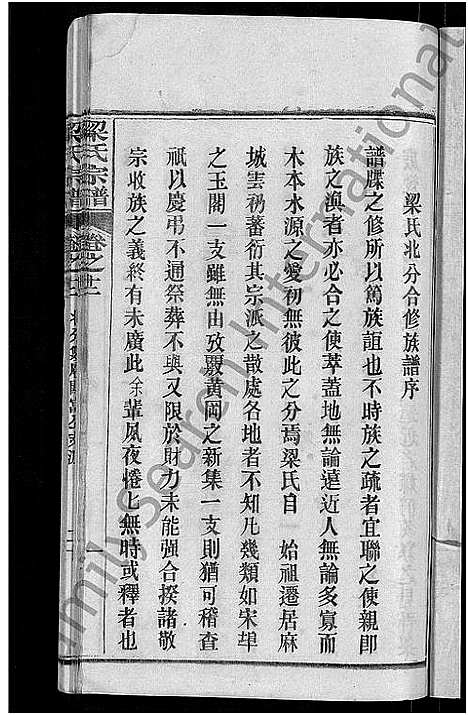 梁氏北分合修族譜序
譜牒之修所以篤族誼也不時族之疏者宜聯之使親即
族之渙者亦必合之使萃蓋地無論遠近人無論多寡而
木本水源之愛初無彼此之分焉梁氏自　始祖遷居麻
城雲礽蕃衍其宗派之散處各地者不知凡幾類如宋埠
之玉閣一支雖無由攷覈黄岡之新集一支則猶可稽查
祇以慶弔不通祭葬不與又限於財力未能强合揆諸敬
宗收族之義終有未廣此余輩夙夜惓匕無時或釋者也
梁氏宗譜
卷之
一
Family Search International